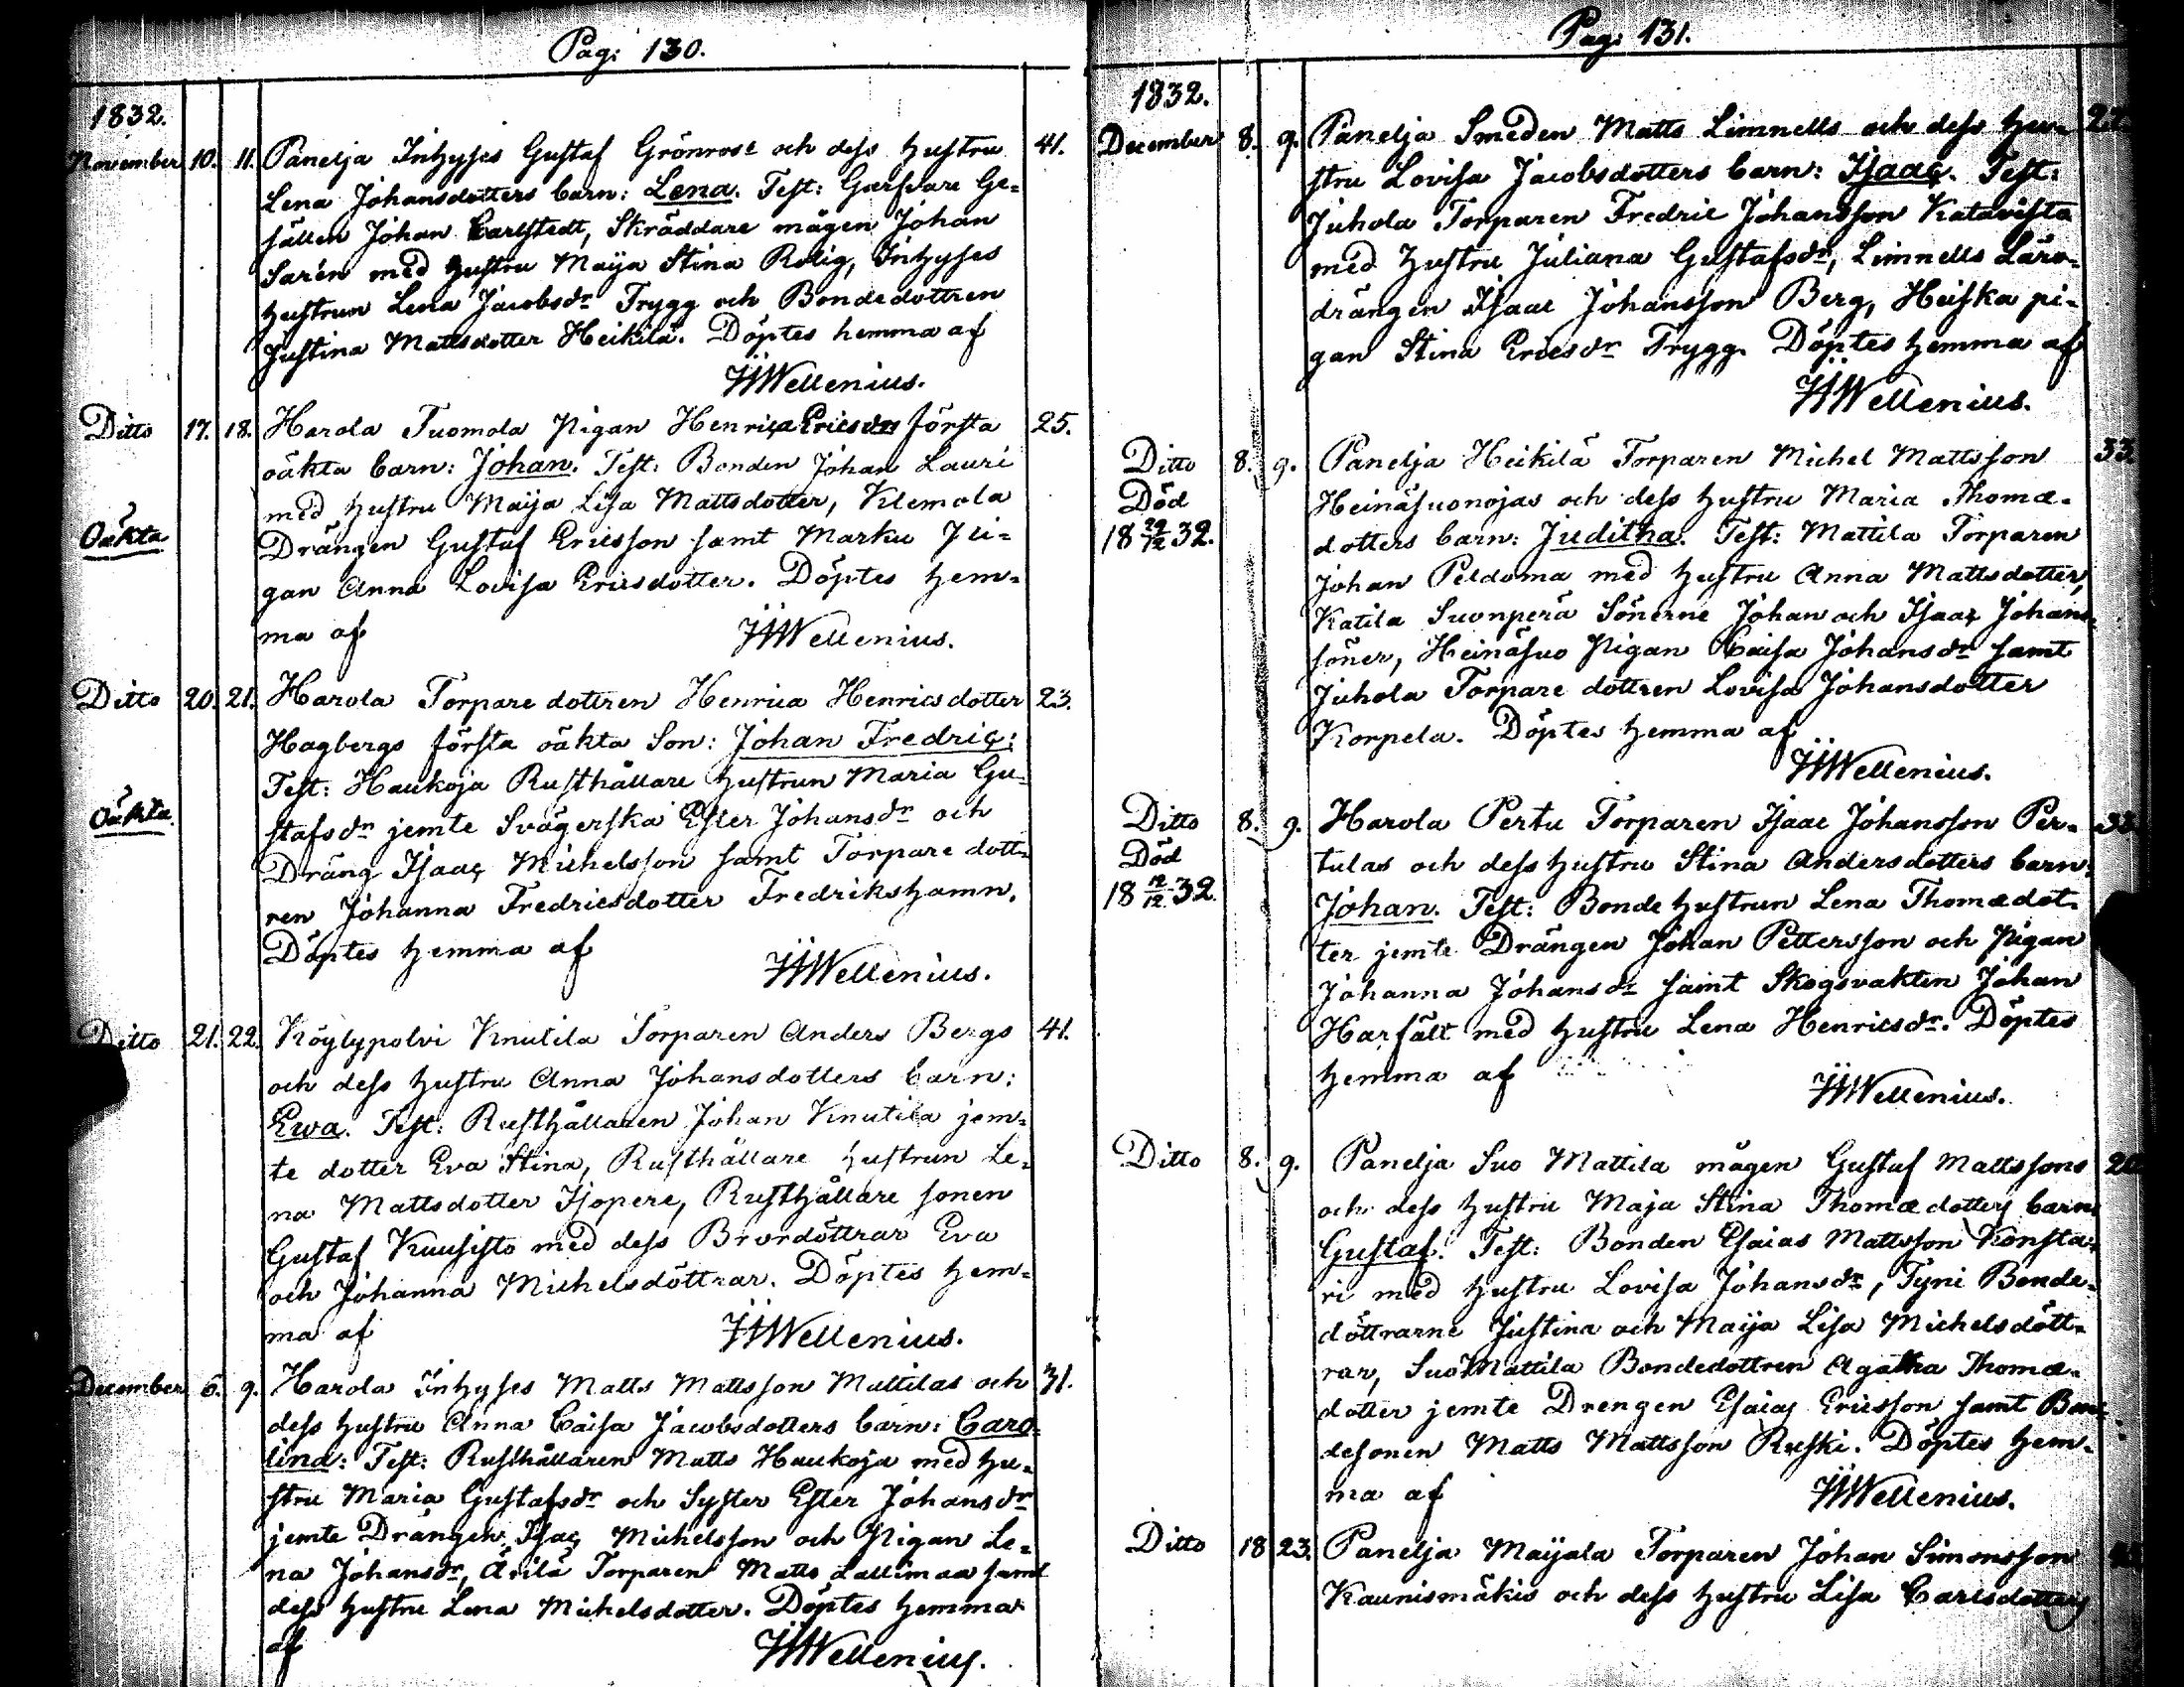 Pag: 130.
1832.
November 10. 11. Panelja Inhyses Gustaf Grönrose och dess hustru 41.
Lena Johansdotters barn: Lena. Test: Garfvare Ge-
sällen Johan Carlstedt, Skräddare mågen Johan
Sarén med hustru Maija Stina Rolig, Inhyses
hustrun Lena Jacobsdr Trygg och Bondedottren
Justina Mattsdotter Heikilä. Döptes hemma af
Wellenius.
Ditto 17. 18. Harola Tuomola Pigan Henrica Ericsdrs första 25.
oäkta barn: Johan. Test: Bonden Johan Lauri
med hustru Maija Lisa Mattsdotter, Klemola
Oäkta Drängen Gustaf Ericsson samt Marku Pi-
gan Anna Lovisa Ericsdotter. Döptes hem-
ma af
Wellenius.
Ditto 20. 21. Harola Torpare dottren Henrica Henricsdotter 23.
Hagbergs första oäkta Son: Johan Fredric:
Test: Haukoja Rusthållare hustrun Maria Gu-
Oäkta. stafsdr jemte Svägerska Ester Johansdr och
Dräng Isaac Michelsson samt Torpare dott-
ren Johanna Fredricsdotter Fredrikshamn.
Döptes hemma af
Wellenius.
Ditto 21. 22. Köylypolvi Knutila Torparen Anders Bergs 41.
och dess hustru Anna Johansdotters barn:
Ewa. Test: Rusthållaren Johan Knutila jem-
te dotter Eva Stina, Rusthållare hustrun Le-
na Mattsdotter Isopere, Rusthållare sonen
Gustaf Kuusisto med dess Brordöttrar Eva
och Johanna Michelsdöttrar. Döptes hem-
ma af
Wellenius.
December 6. 9. Harola Inhyses Matts Mattsson Mattilas och 31.
dess hustru Anna Caisa Jacobsdotters barn: Caro-
lina: Test: Rusthållaren Matts Haukoja med hu-
stru Maria Gustafsdr och Syster Ester Johansdr
jemte Drängen Isac Michelsson och Pigan Le-
na Johansdr, Arilä Torparen Matts Lallimaa samt
dess hustru Lena Michelsdotter. Döptes hemma
af
Wellenius.
Pag: 131.
1832.
December 8. 9. Panelja Smeden Matts Limnells och dess hu-
stru Lovisa Jacobsdotters barn: Isaac. Test:
Juhola Torparen Fredric Johansson Katavisto
med hustru Juliana Gustafsdr, Limnells Läro-
drängen Isaac Johansson Berg, Heiska pi-
gan Stina Ericsdr Trygg. Döptes hemma af
Wellenius.
Ditto 8. 9. Panelja Heikilä Torparen Michel Mattsson 33.
Död Heinäsuonojas och dess hustru Maria Thomæ-
18 29/12 32. dotters barn: Juditha. Test: Mattila Torparen
Johan Peldoma med hustru Anna Mattsdotter,
Katila Suonperä Sönerne Johan och Isaac Johans-
söner, Heinäsuo Pigan Caisa Johansdr samt
Juhola Torpare dottren Lovisa Johansdotter
Korpela. Döptes hemma af
Wellenius.
Ditto 8. 9. Harola Pertu Torparen Isaac Johansson Per-
Död tulas och dess hustru Stina Andersdotters barn:
18 12/12 32. Johan. Test: Bonde hustrun Lena Thomædot-
ter jemte Drängen Johan Pettersson och Pigan
Johanna Johansdr samt Skogsvakten Johan
Harfält med hustru Lena Henricsdr. Döptes
hemma af
Wellenius.
Ditto 8. 9. Panelja Suo Mattila mågen Gustaf Mattssons
och dess hustru Maja Stina Thomædotters barn:
Gustaf. Test: Bonden Esaias Mattsson Konsta-
ri med hustru Lovisa Johansdr, Tyni Bonde-
döttrarne Justina och Maija Lisa Michelsdött-
rar, Suo Mattila Bondedottren Agatha Thomæ-
dotter jemte Drengen Esaias Ericsson samt Bon-
desonen Matts Mattsson Ruski. Döptes hem-
ma af
Wellenius.
Ditto 18 23. Panelja Maijala Torparen Johan Simonsson
Kaunismäkis och dess hustru Lisa Carlsdotters